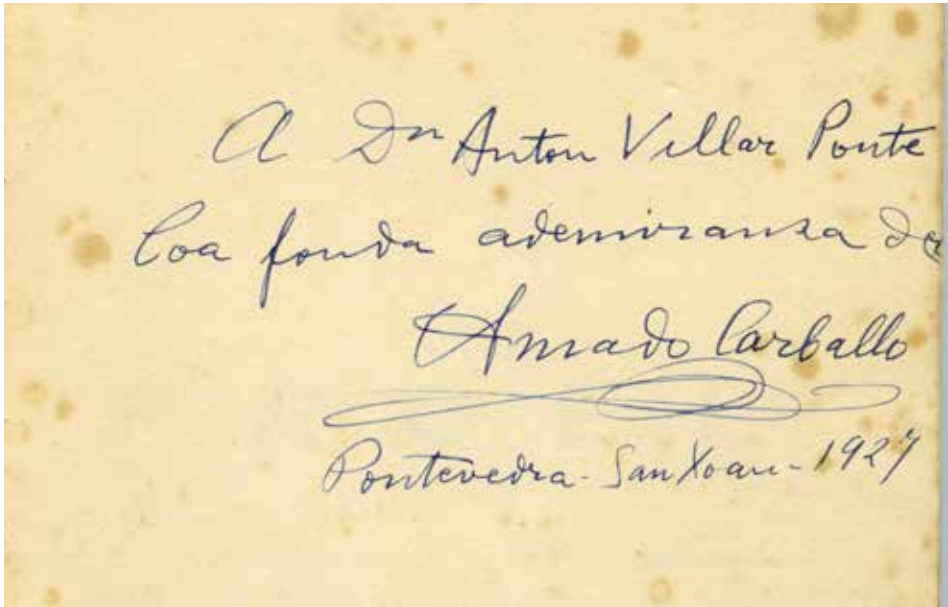 A Dn Anton Villar Ponte
Coa fonda ademiranza de
Amado Carballo
Pontevedra - San Xoan - 1927